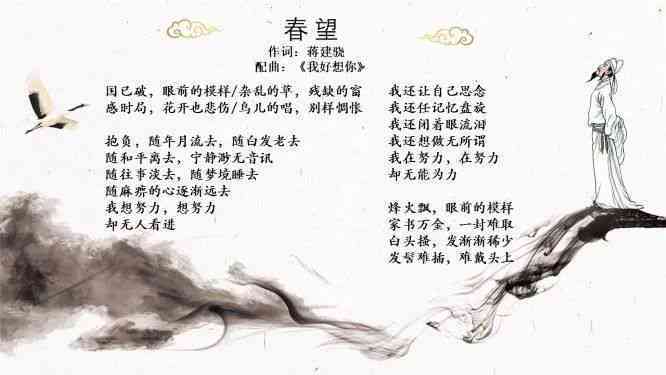 春望
作词：蒋建骁
配曲：《我好想你》
国已破，眼前的模样/杂乱的草，残缺的窗
感时局，花开也悲伤/鸟儿的唱，别样惆怅
抱负，随年月流去，随白发老去
随和平离去，宁静渺无音讯
随往事淡去，随梦境睡去
随麻痹的心逐渐远去
我想努力，想努力
却无人看进
我还让自己思念
我还任记忆盘旋
我还闭着眼流泪
我还想做无所谓
我在努力，在努力
却无能为力
烽火飘，眼前的模样
家书万金，一封难取
白头搔，发渐渐稀少
发髻难插，难戴头上